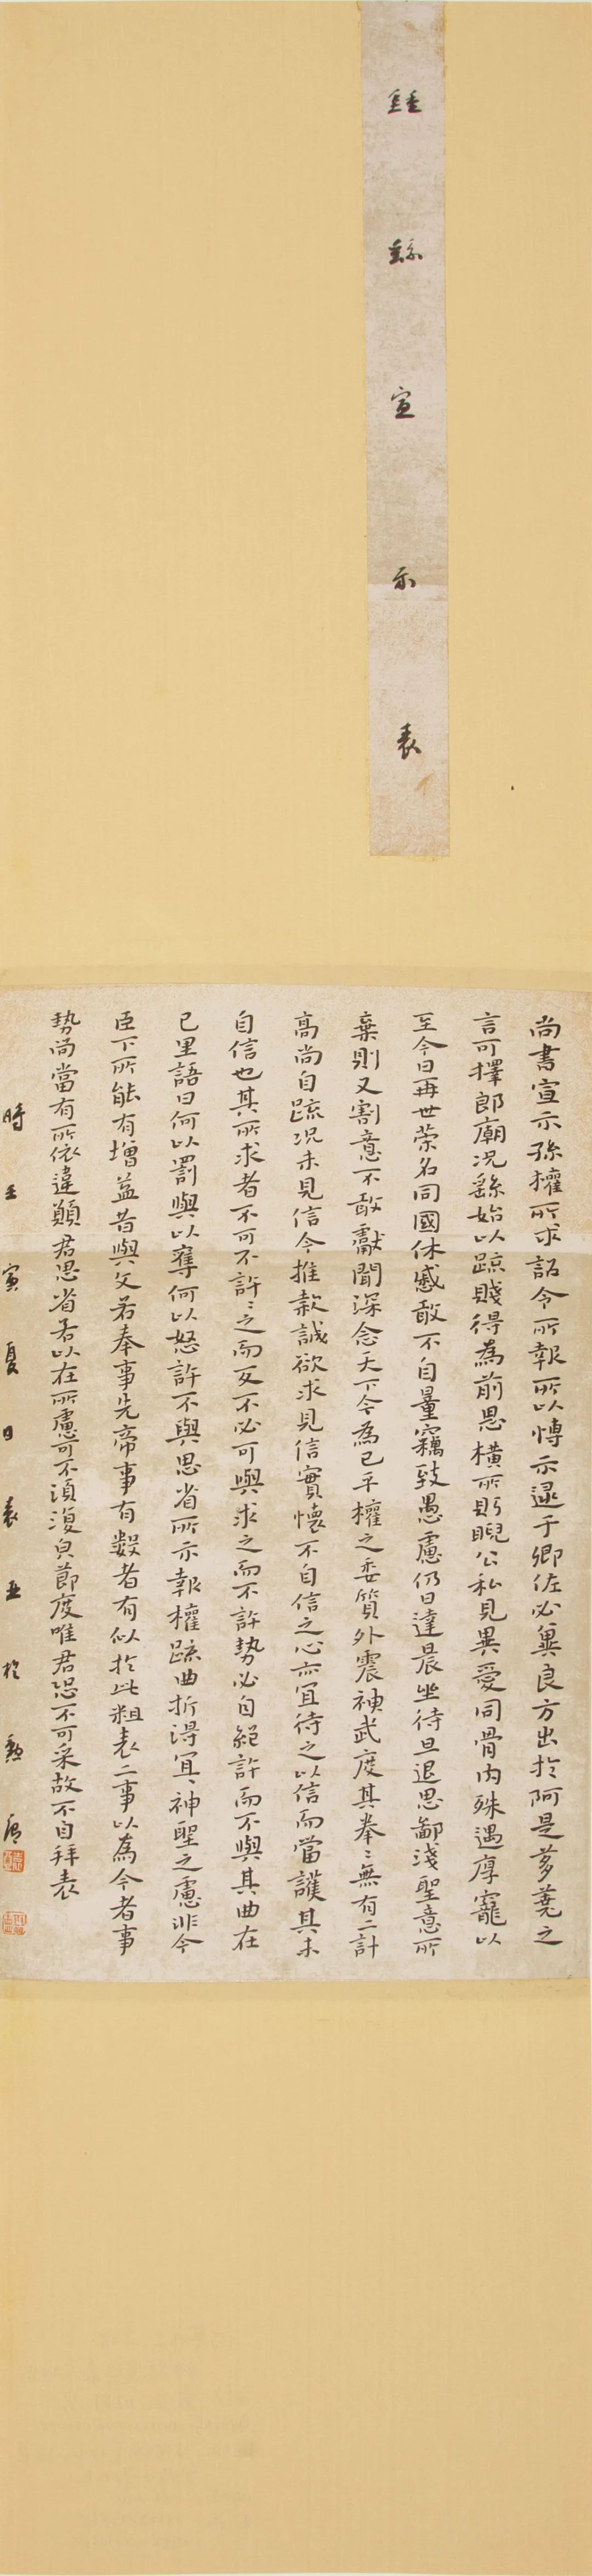 鍾繇宣示表
尚書宣示孫權所求詔令所報所以博示逮于卿佐必冀良方出於阿是芻蕘之
言可擇郎廟況繇始以疏賤得為前恩橫所眄睨公私見異愛同骨肉殊遇厚寵以
至今日再世榮名同國休慼敢不自量竊致愚慮仍日達晨坐待旦退思鄙淺聖意所
棄則又割意不敢獻聞深念天下今為已平權之委質外震神武度其拳〻無有二計
高尚自疏況未見信今推款誠欲求見信實懷不自信之心亦宜待之以信而當護其未
自信也其所求者不可不許〻之而反不必可與求之而不許勢必自絕許而不與其曲在
已里語曰何以罰與以奪何以怒許不與思省所示報權疏曲折得宜〻神聖之慮非今
臣下所能有增益昔與文若奉事先帝事有數者有似於此粗表二事以為今者事
勢尚當有所依違願君思省若以在所慮可不須復㒵節度唯君恐不可采故不自拜表
時壬寅夏日袁亞於